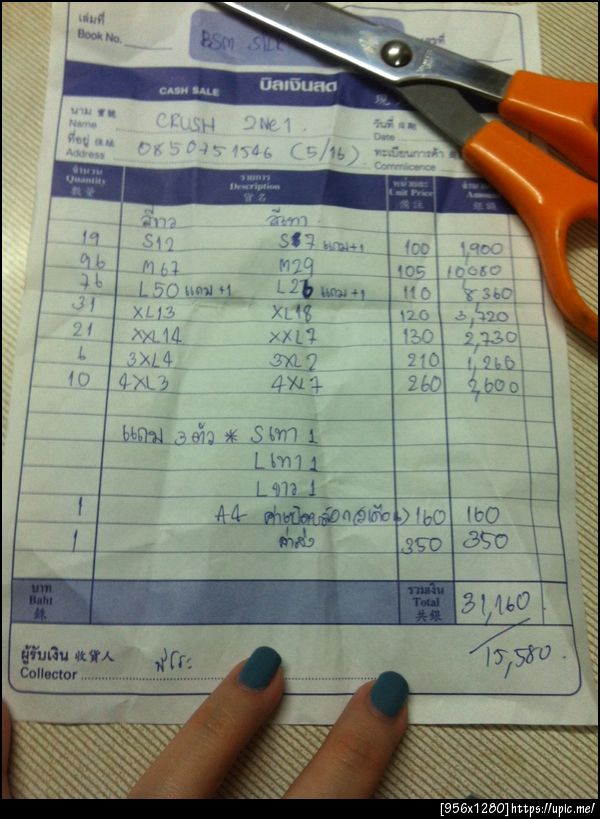 เล่มที่
Book No.
BSM SILK
CASH SALE บิลเงินสด 現
นาม 寶號
Name CRUSH 2NE1 วันที่ 日期
Date
ที่อยู่ 住址
Address 0850751546 (5/16) ทะเบียนการค้า
Commlicence
จำนวน รายการ หน่วยละ จำนวน
Quantity Description Unit Price Amount
數量 貨名 備註 銀碼
สีขาว สีเทา
19 S12 S7 แถม+1 100 1,900
96 M67 M29 105 10080
76 L50 แถม+1 L26 แถม+1 110 8360
31 XL13 XL18 120 3,720
21 XXL14 XXL7 130 2,730
6 3XL4 3XL2 210 1,260
10 4XL3 4XL7 260 2,600
แถม 3 ตัว * S เทา 1
L เทา 1
L ขาว 1
1 A4 160 160
1 ค่าส่ง 350 350
บาท รวมเงิน
Baht Total 31,160
銖 共銀
15,580.
ผู้รับเงิน 收貨人
Collector
[956x1280]https://upic.me/